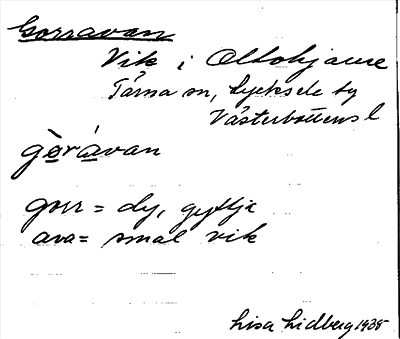 Gorravan
Vik i Ollohjaure
Tärna sn, Lycksele tg
Västerbottens l
gòrávan
gorr = dy, gyttja
ava = smal vik
Lisa Lidberg 1938